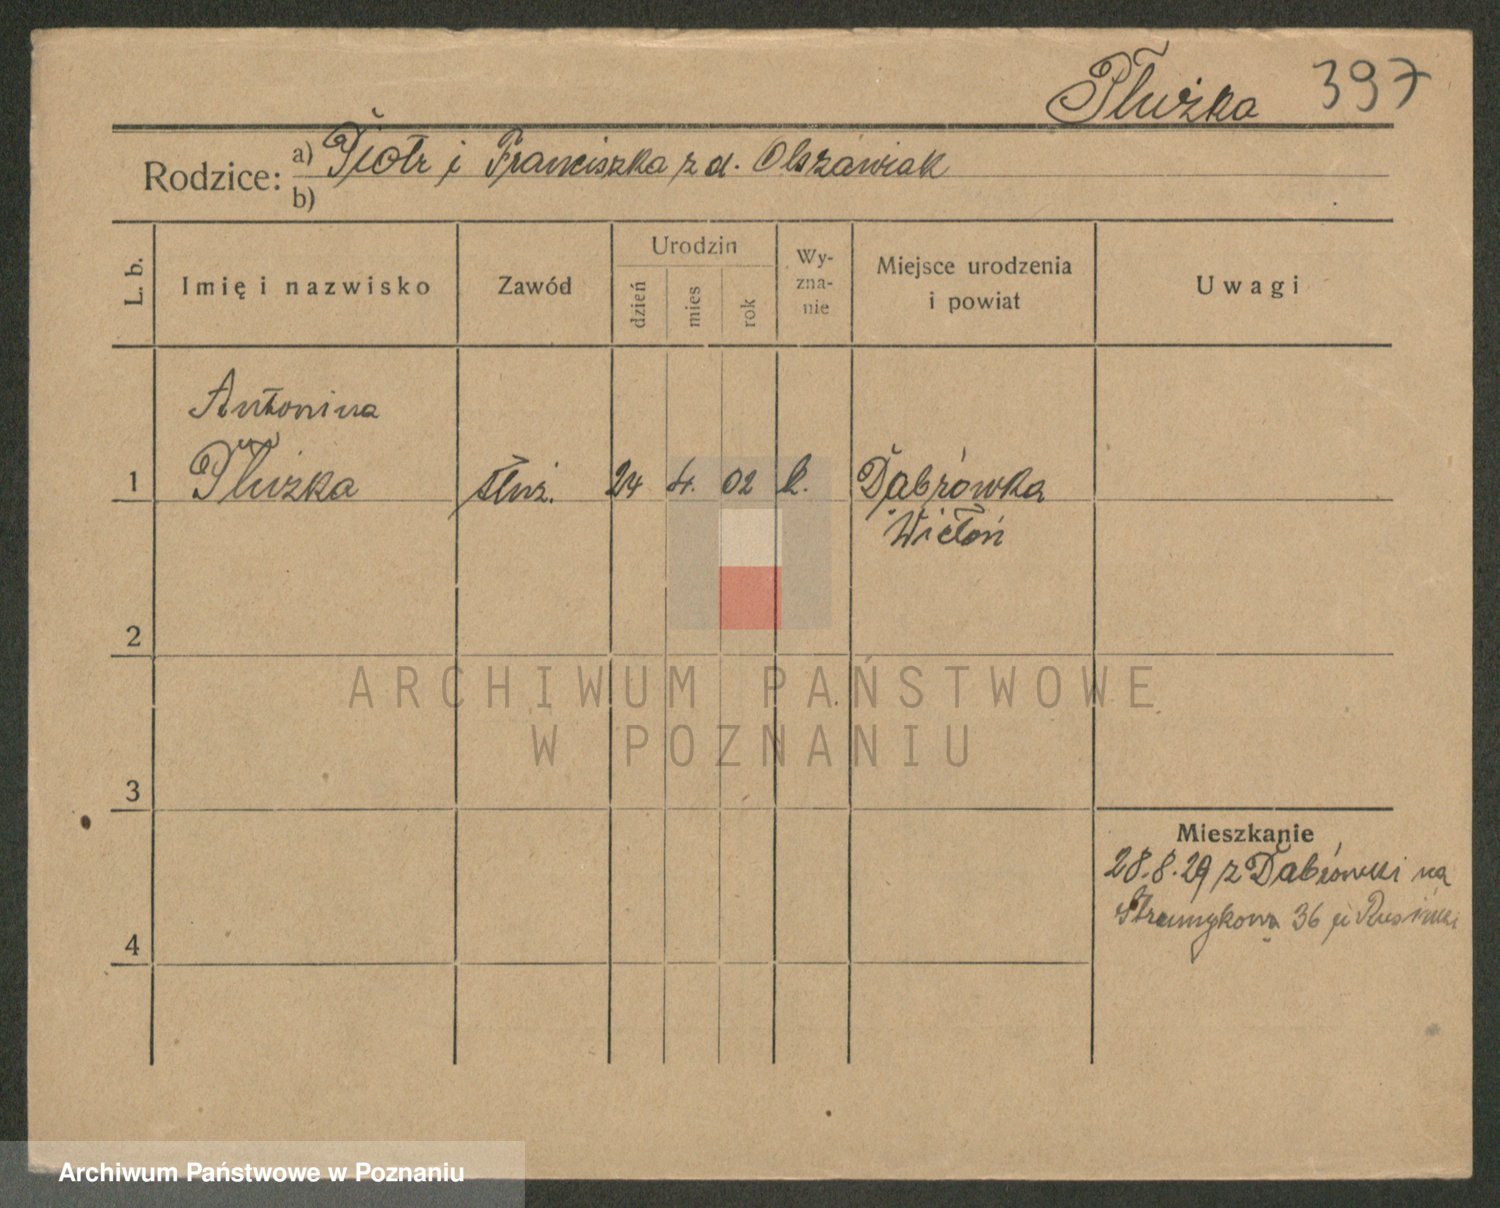 Płużka 397
Rodzice: a) Piotr i Franciszka z d. Olszawiak
b)
L. b. Imię i nazwisko Zawód Urodzin dzień mies rok Wyznanie Miejsce urodzenia i powiat Uwagi
Antonina
1 Płużka służ. 24 4. 02 k. Dąbrówka
Wieluń
2
ARCHIWUM PAŃSTWOWE
W POZNANIU
3
Mieszkanie
28.8.29 z Dąbrówki na
4 Strumykowa 36
Archiwum Państwowe w Poznaniu